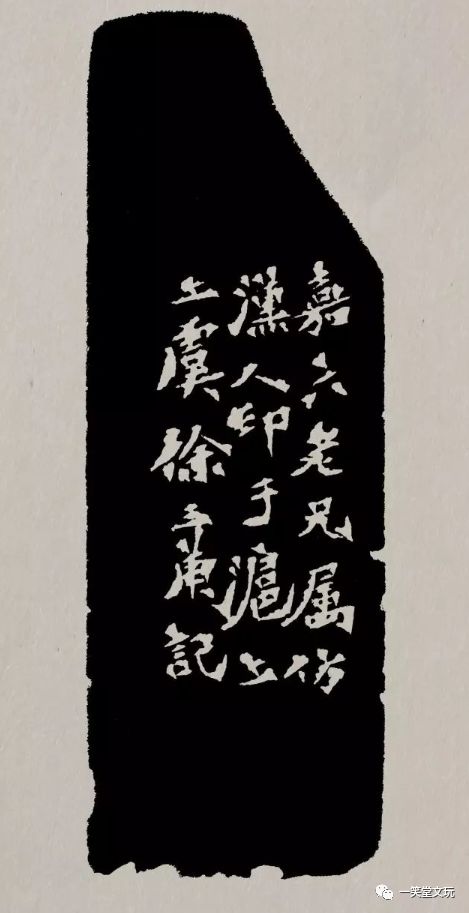 嘉六老兄属仿
漢人印于滬上
上虞徐三庚記
一笑堂文玩